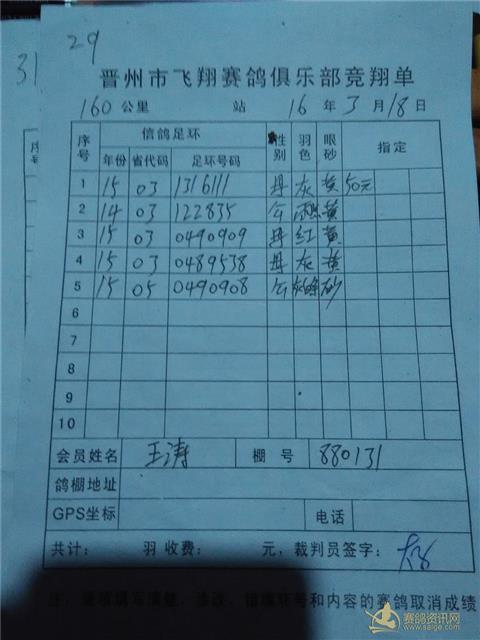 29
31
晋州市飞翔赛鸽俱乐部竞翔单
160 公里 站 16 年 3 月 18 日
序号 信鸽足环 性别 羽色 眼砂 指定
年份 省代码 足环号码
1 15 03 1316111 灰 黄 50元
2 14 03 122835 雨点 黄
3 15 03 0490909 红 黄
4 15 03 0489538 灰 黄
5 15 05 0490908 砂
6
7
8
9
10
会员姓名 王涛 棚号 880131
鸽棚地址
GPS坐标 电话
共计： 羽 收费： 元，裁判员签字：
和内容的赛鸽取消成绩
赛鸽资讯网
www.saige.com